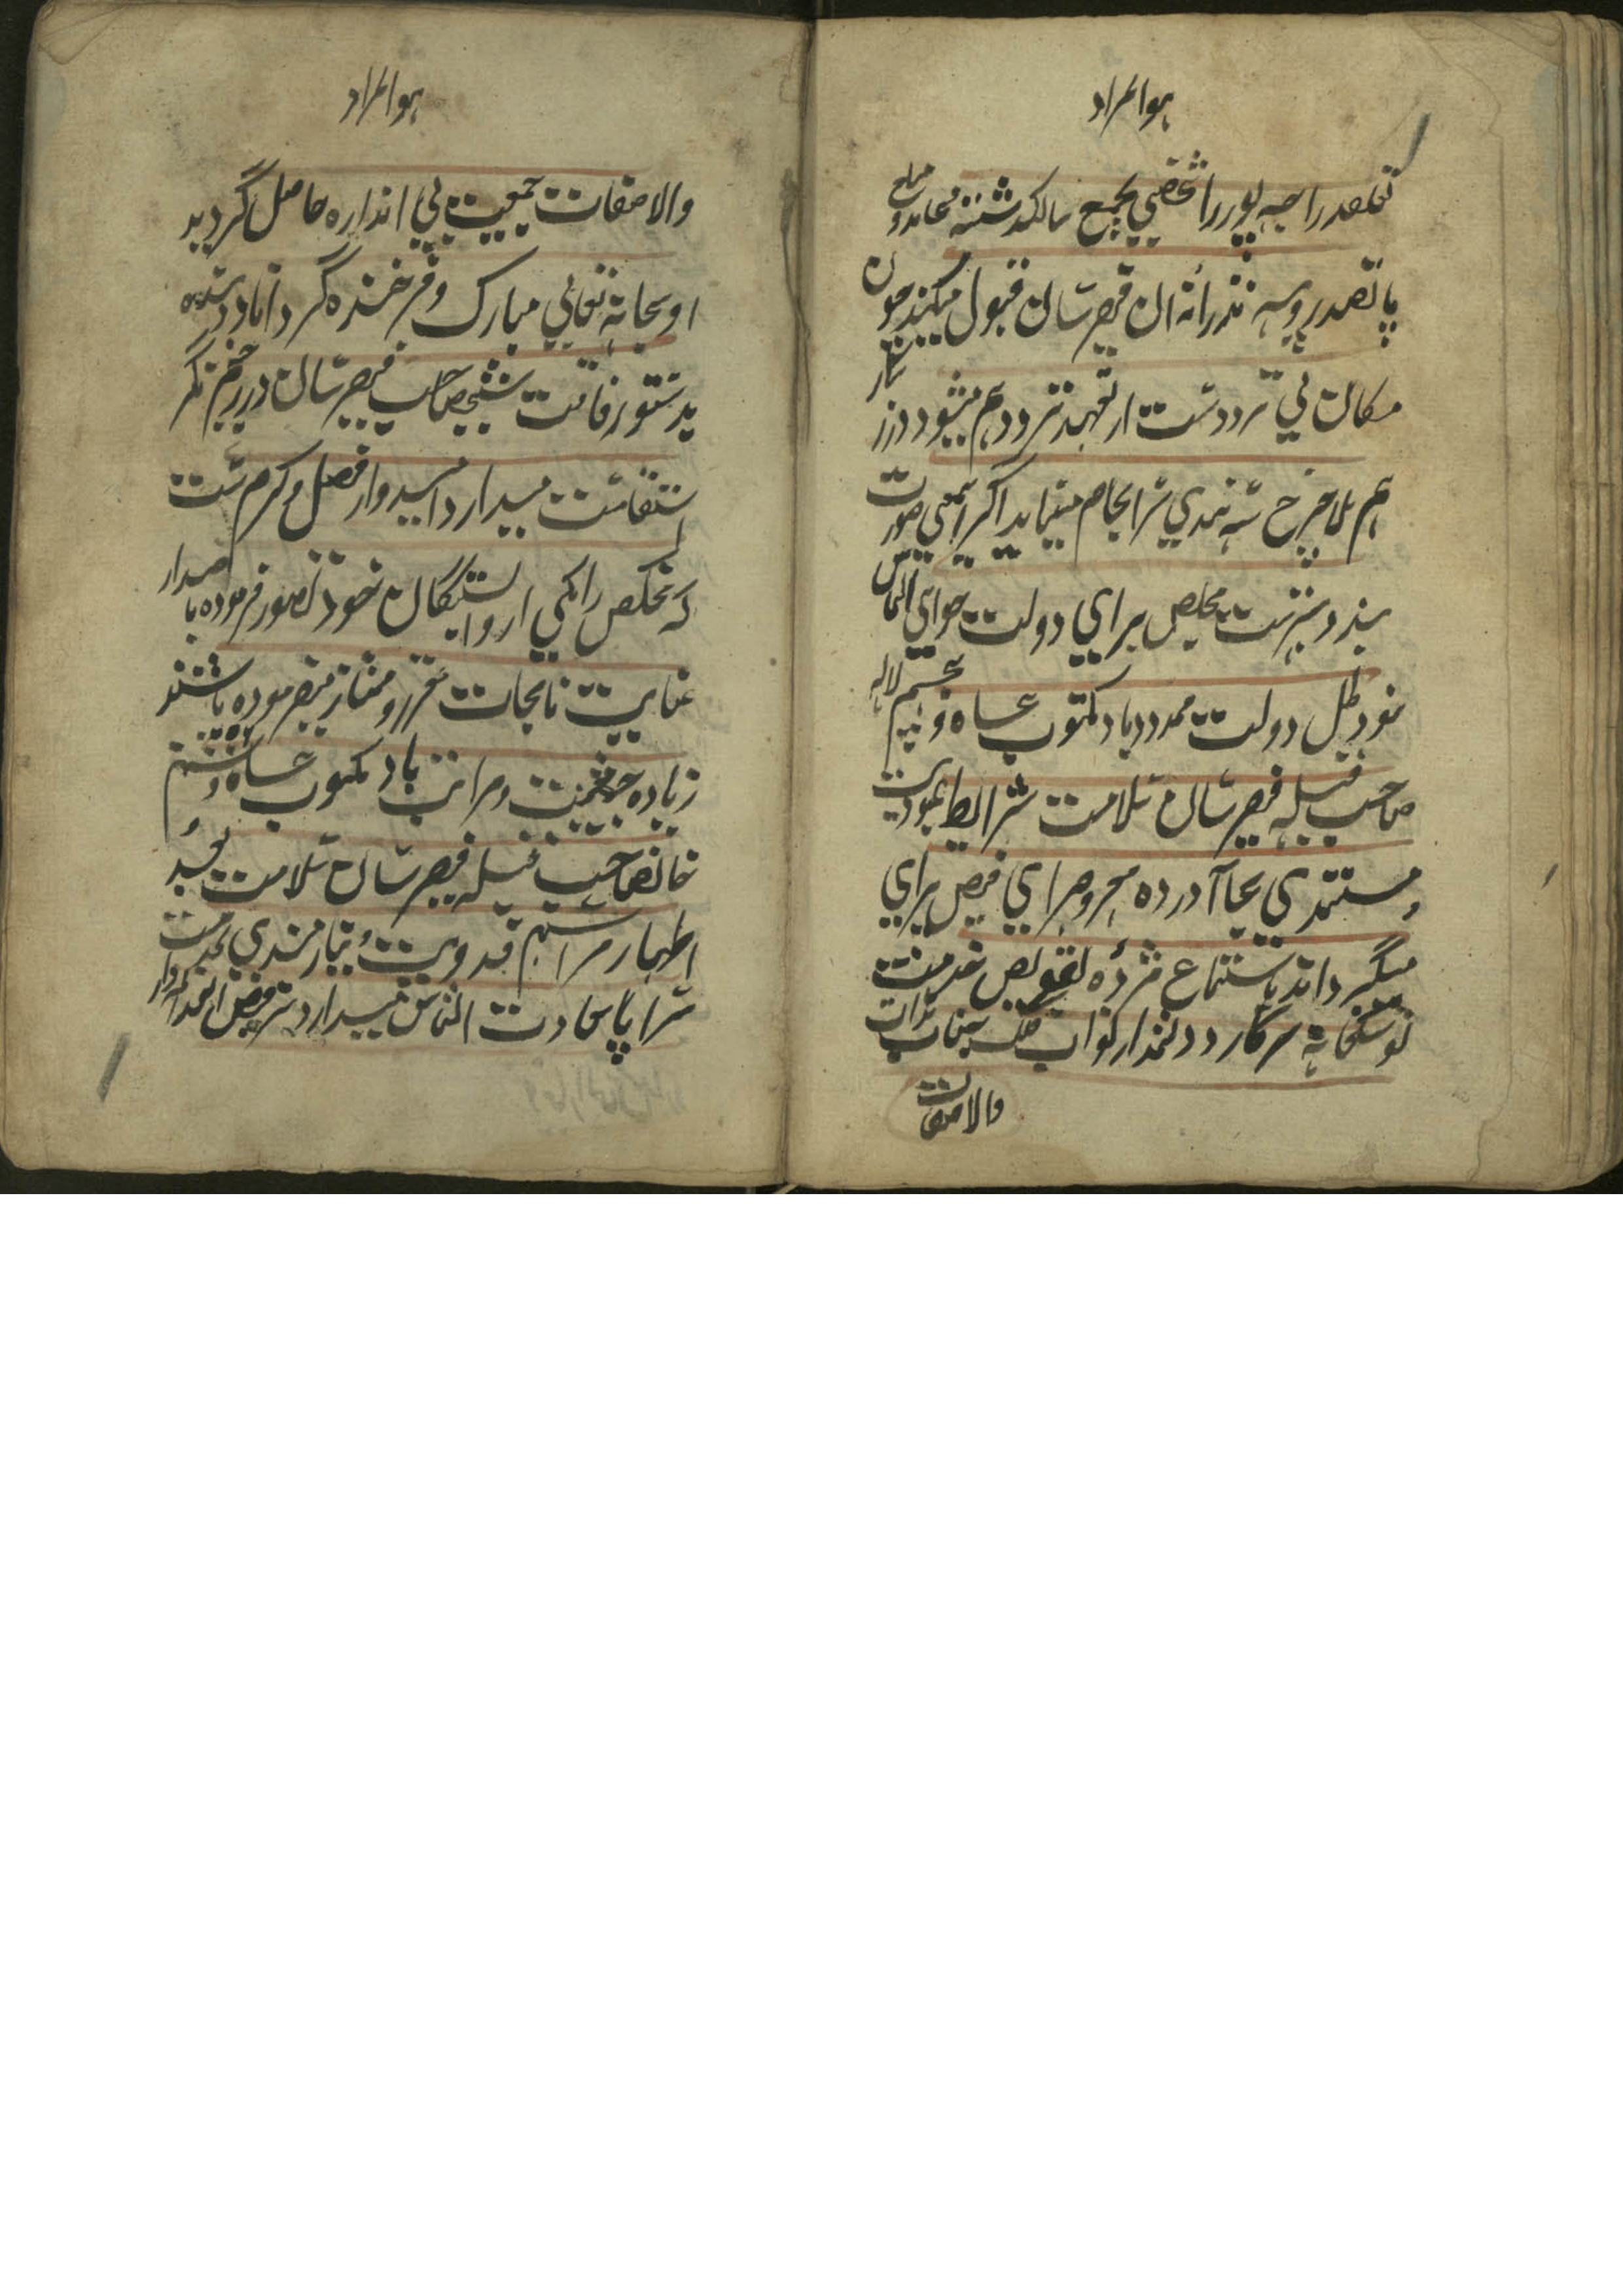 هوالمراد
تعلقه راجه پور را شخصی بجمع سالگذشته معامله و مبلغ
پانصد روپیه نذرانه ان فیض رسان قبول میکند چون
مکان بی تردد ست از تعهد تردد هم میشود و زر
هم بلا خرچ سه بندی سرانجام مینماید اگر اینمعنی صورت
بندد بهتر ست مخلص برای دولت خواهی التماس
نمود ظل دولت ممدود باد مکتوب
صاحب قبله فیض رسان سلامت شرایط عبودیت
و مستمندی بجا آورده معروض رای فیض برای
میگرداند باستماع مژده تفویض خدمت
توشکخانه سرکار دولتمدار نواب
والاصفات
هوالمراد
والاصفات جمعیت بی اندازه حاصل گردید
او سبحانه تعالی مبارک و فرخنده گرداناد
بدستور رفاقت شیخصاحب فیض رسان در
استقامت میدارد امیدوار فضل و کرم ست
که مخلص را یکی از وابستگان خود تصور فرموده باصدار
عنایت نامجات معزز و ممتاز میفرموده باشند
زیاده جمعیت و مراتب باد مکتوب
خانصاحب قبله فیض رسان سلامت بعد
اظهار مراسم فدویت و نیازمندی بخدمت
سراپا سعادت التماس میدارد